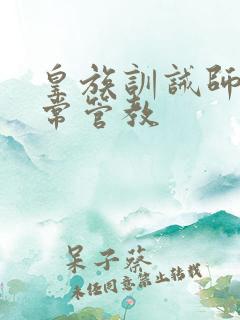 皇族訓誡師
常管教
呆子蔡
未经同意禁止转载